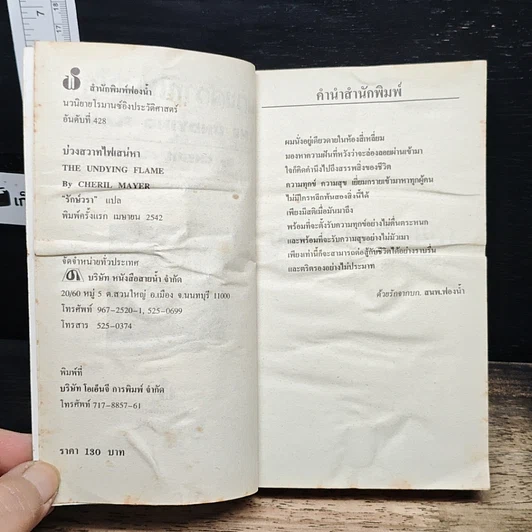 สำนักพิมพ์ฟองน้ำ
นวนิยายโรมานซ์อิงประวัติศาสตร์
อันดับที่ 428
บ่วงสวาทไฟเสน่หา
THE UNDYING FLAME
By CHERIL MAYER
"รักษ์วรา" แปล
พิมพ์ครั้งแรก เมษายน 2542
จัดจำหน่ายทั่วประเทศ
บริษัท หนังสือสายน้ำ จำกัด
20/60 หมู่ 5 ต.สวนใหญ่ อ.เมือง จ.นนทบุรี 11000
โทรศัพท์ 967-2520-1, 525-0699
โทรสาร 525-0374
พิมพ์ที่
บริษัท โอเอ็นจี การพิมพ์ จำกัด
โทรศัพท์ 717-8857-61
ราคา 130 บาท
คำนำสำนักพิมพ์
ผมนั่งอยู่เดียวดายในห้องสี่เหลี่ยม
มองหาความฝันที่หวังว่าจะล่องลอยผ่านเข้ามา
ใจก็คิดคำนึงไปถึงสรรพสิ่งของชีวิต
ความทุกข์ ความสุข เยี่ยมกรายเข้ามาหาทุกผู้คน
ไม่มีใครหลีกพ้นสองสิ่งนี้ได้
เพียงมีสติเมื่อมันมาถึง
พร้อมที่จะตั้งรับความทุกข์อย่างไม่ตื่นตระหนก
และพร้อมที่จะรับความสุขอย่างไม่มัวเมา
เพียงเท่านี้ก็จะสามารถต่อสู้กับชีวิตได้อย่างราบรื่น
และตริตรองอย่างไม่ประมาท
ด้วยรักจากบก. สนพ.ฟองน้ำ